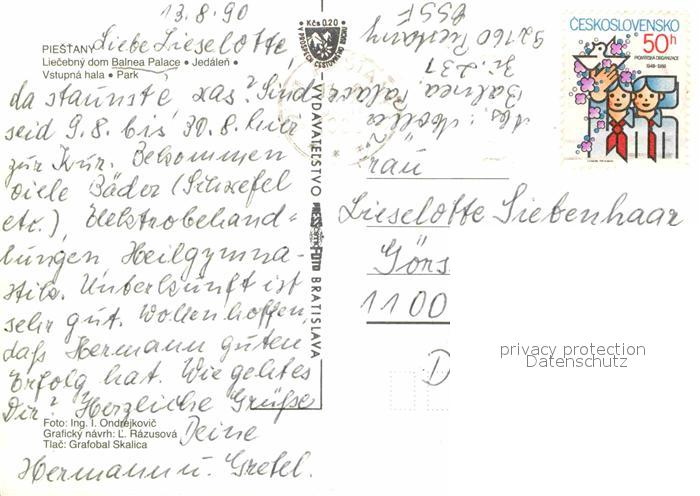 13.8.90
PIEŠŤANY
Liebe Lieselotte,
Liečebný dom Balnea Palace • Jedáleň •
Vstupná hala • Park
da staunste, was? Sind
seid 9.8. bis 30.8. hier
zur Kur. Bekommen
viele Bäder (Schwefel
etc.), Elektrobehand-
lungen Heilgymna-
stik. Unterkunft ist
sehr gut. Wollen hoffen,
daß Hermann guten
Erfolg hat. Wie geht es
Dir? Herzliche Grüße
Deine
Hermann u. Gretel.
Foto: Ing. I. Ondrejkovič
Grafický návrh: Ľ. Rázusová
Tlač: Grafobal Skalica
Kčs 0.20
V PROSPECH CESTOVNÉHO RUCHU
VYDAVATEĽSTVO PRESSFOTO BRATISLAVA
Abs.:
Balnea Palace
Nr. 231
92160 Piestany
ČSSR
ČESKOSLOVENSKO
50h
PIONÝRSKÁ ORGANIZACE
Frau
Lieselotte Siebenhaar
Görs
1100
D
privacy protection
Datenschutz